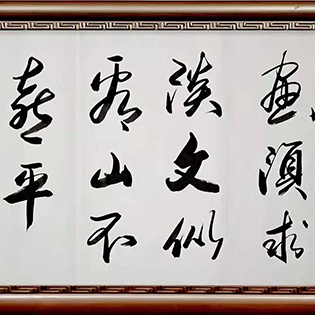 画须求
淡文似
看山不
喜平